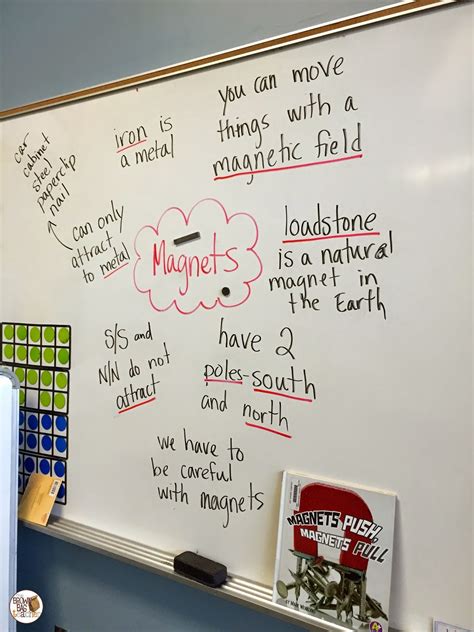 you can move
things with a
magnetic field
iron is
a metal
car
cabinet
steel
paperclip
nail
can only
attract
to metal
Magnets
loadstone
is a natural
magnet in
the Earth
S/S and
N/N do not
attract
have 2
poles-south
and north
we have to
be careful
with magnets
MAGNETS PUSH,
MAGNETS PULL
BROWN
BAG
teacher